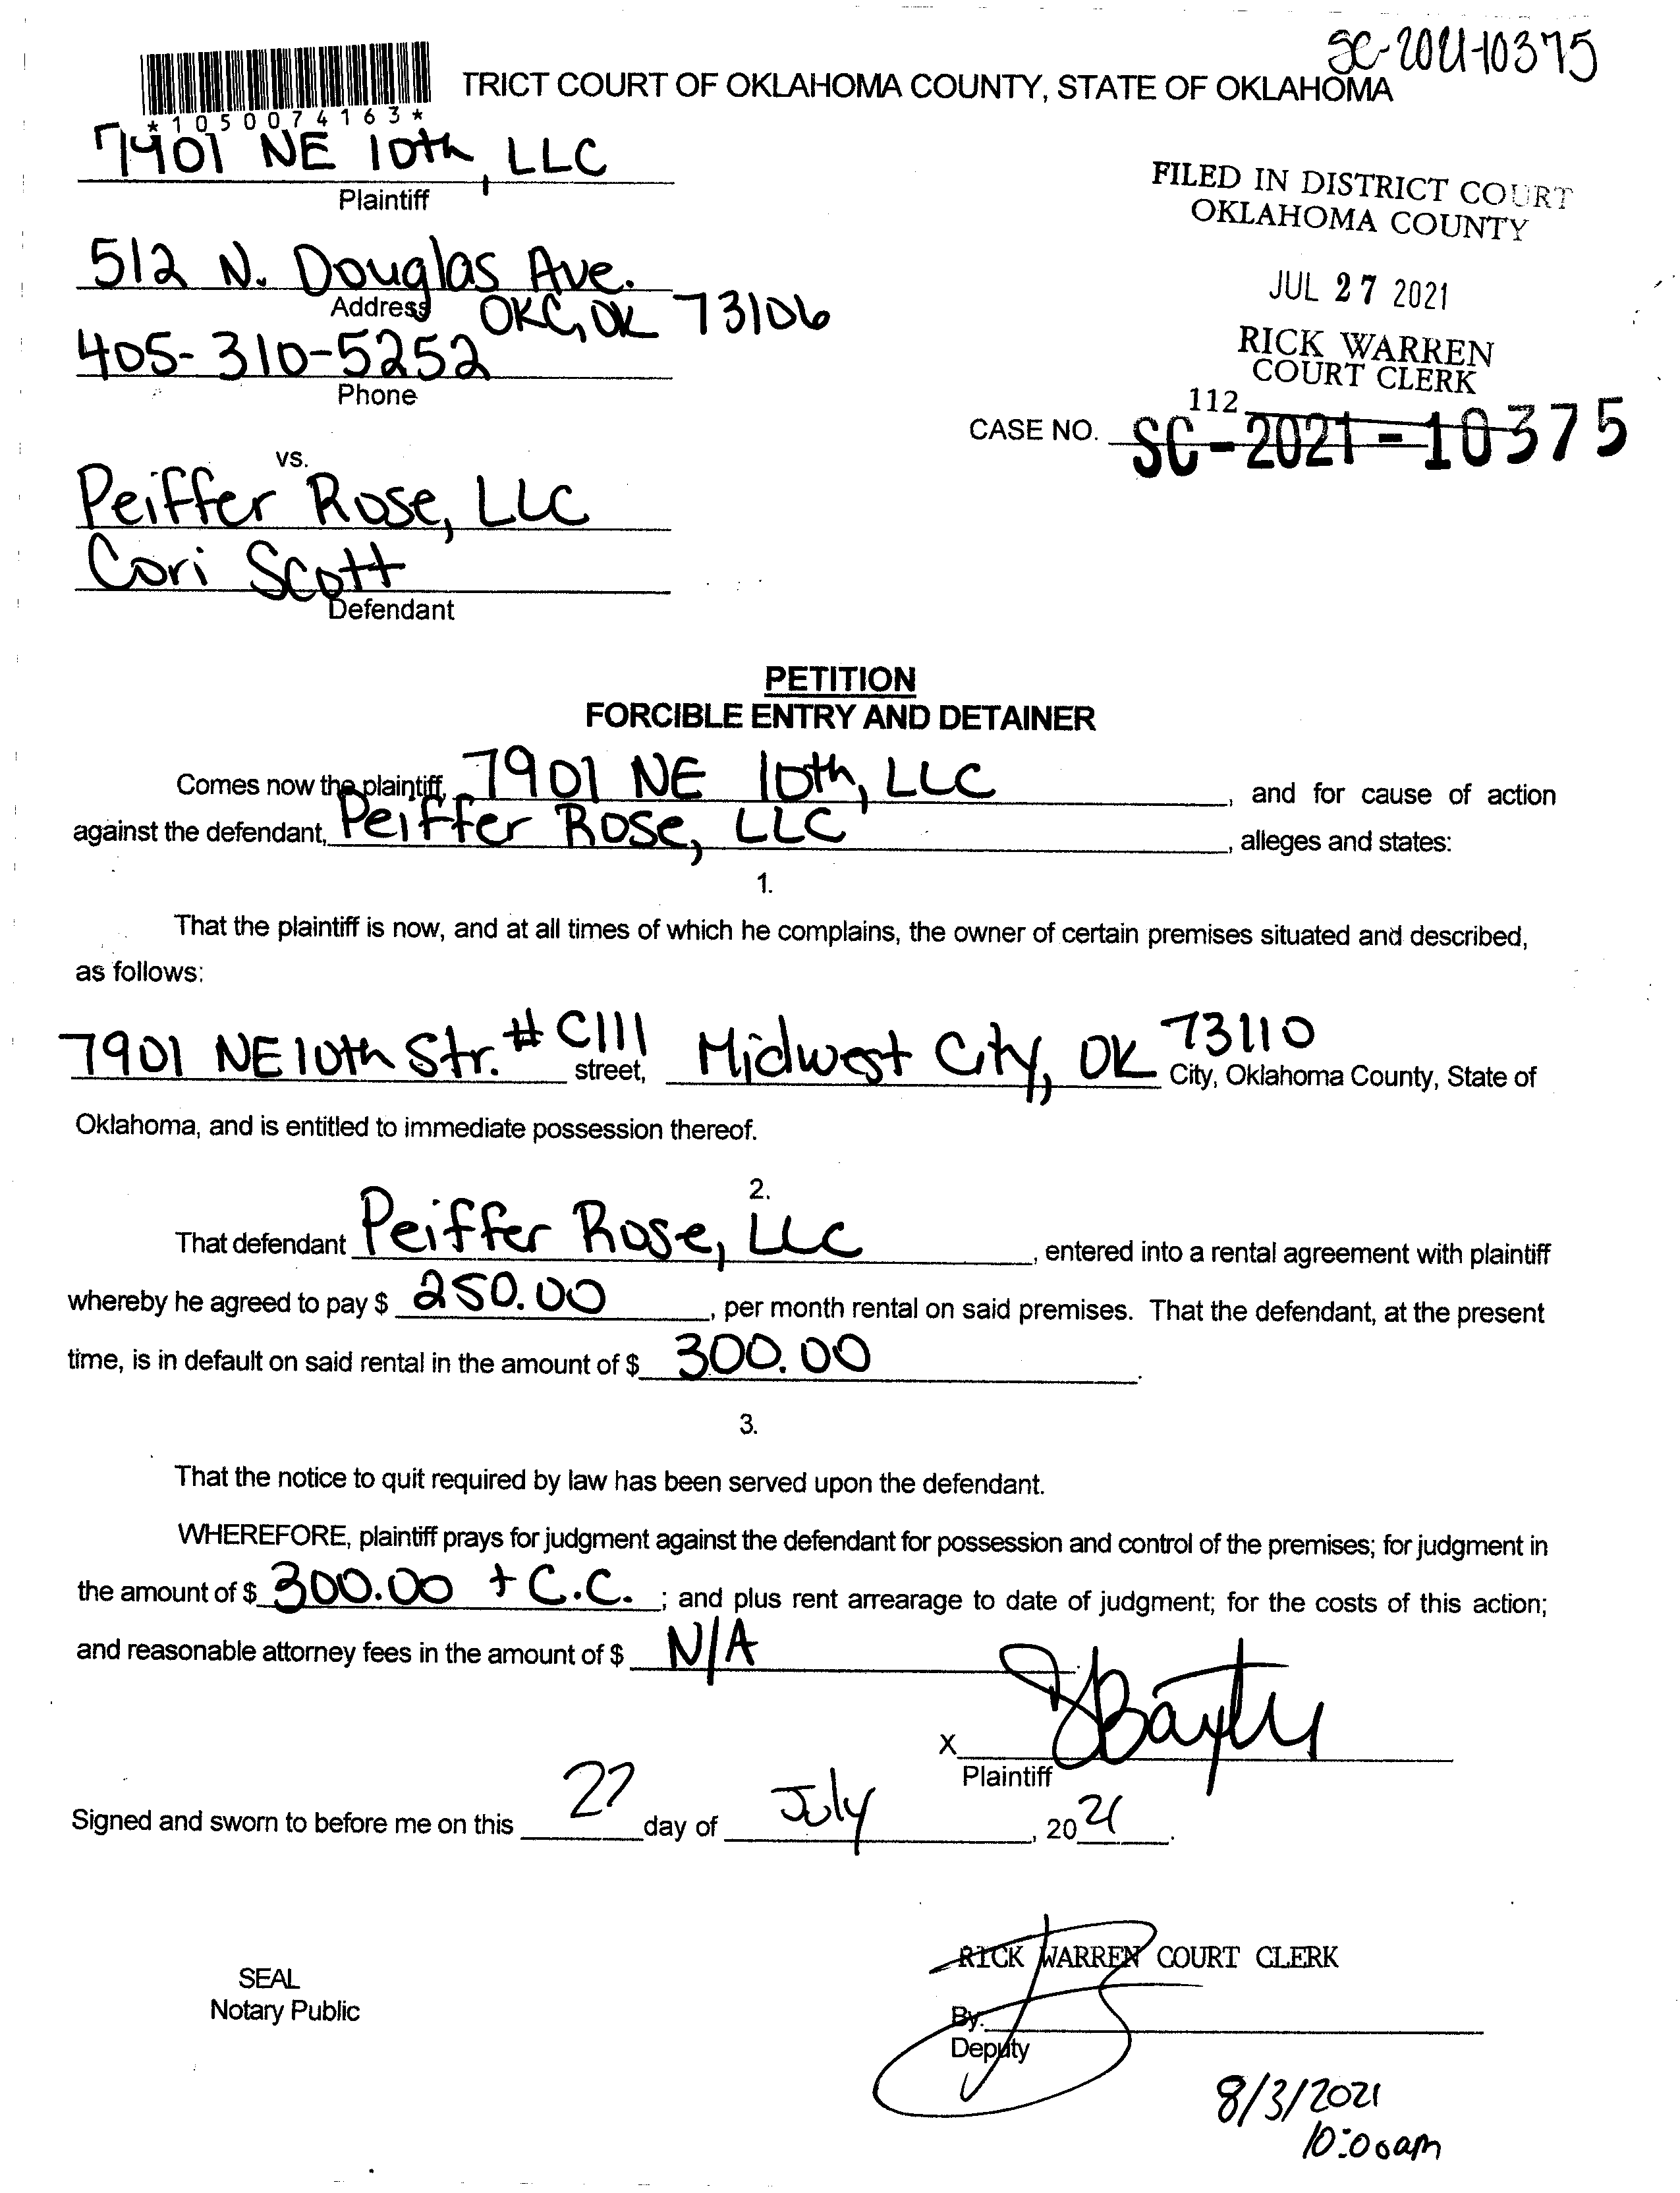 SC-2021-10375
TRICT COURT OF OKLAHOMA COUNTY, STATE OF OKLAHOMA
*1050074163*
7901 NE 10th, LLC
Plaintiff
FILED IN DISTRICT COURT
OKLAHOMA COUNTY
512 N. Douglas Ave.
Address OKC, OK 73106
JUL 27 2021
405-310-5252
Phone
RICK WARREN
COURT CLERK
112
CASE NO. SC-2021-10375
vs.
Peiffer Rose, LLC
Cori Scott
Defendant
PETITION
FORCIBLE ENTRY AND DETAINER
Comes now the plaintiff, 7901 NE 10th, LLC, and for cause of action
against the defendant, Peiffer Rose, LLC, alleges and states:
1.
That the plaintiff is now, and at all times of which he complains, the owner of certain premises situated and described,
as follows:
7901 NE 10th Str. # C111 street, Midwest City, OK 73110 City, Oklahoma County, State of
Oklahoma, and is entitled to immediate possession thereof.
2.
That defendant Peiffer Rose, LLC, entered into a rental agreement with plaintiff
whereby he agreed to pay $ 250.00, per month rental on said premises. That the defendant, at the present
time, is in default on said rental in the amount of $ 300.00.
3.
That the notice to quit required by law has been served upon the defendant.
WHEREFORE, plaintiff prays for judgment against the defendant for possession and control of the premises; for judgment in
the amount of $ 300.00 + C.C. ; and plus rent arrearage to date of judgment; for the costs of this action;
and reasonable attorney fees in the amount of $ N/A.
X
Plaintiff
Signed and sworn to before me on this 27 day of July, 2021.
RICK WARREN COURT CLERK
SEAL
Notary Public
By:
Deputy
8/3/2021
10:00am